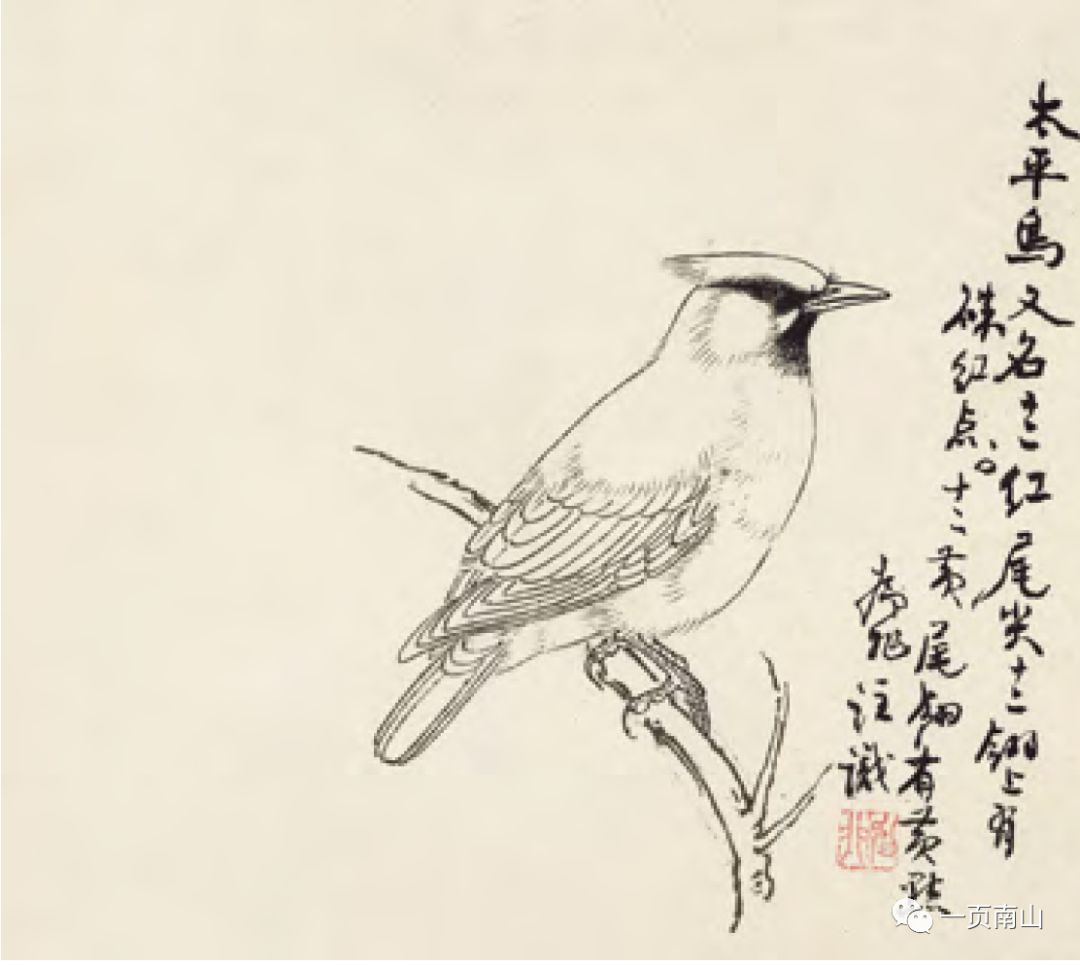 太平鳥又名十二红尾尖十二翎上有
硃红点。十二黄尾翎有黄點
注識
一页南山